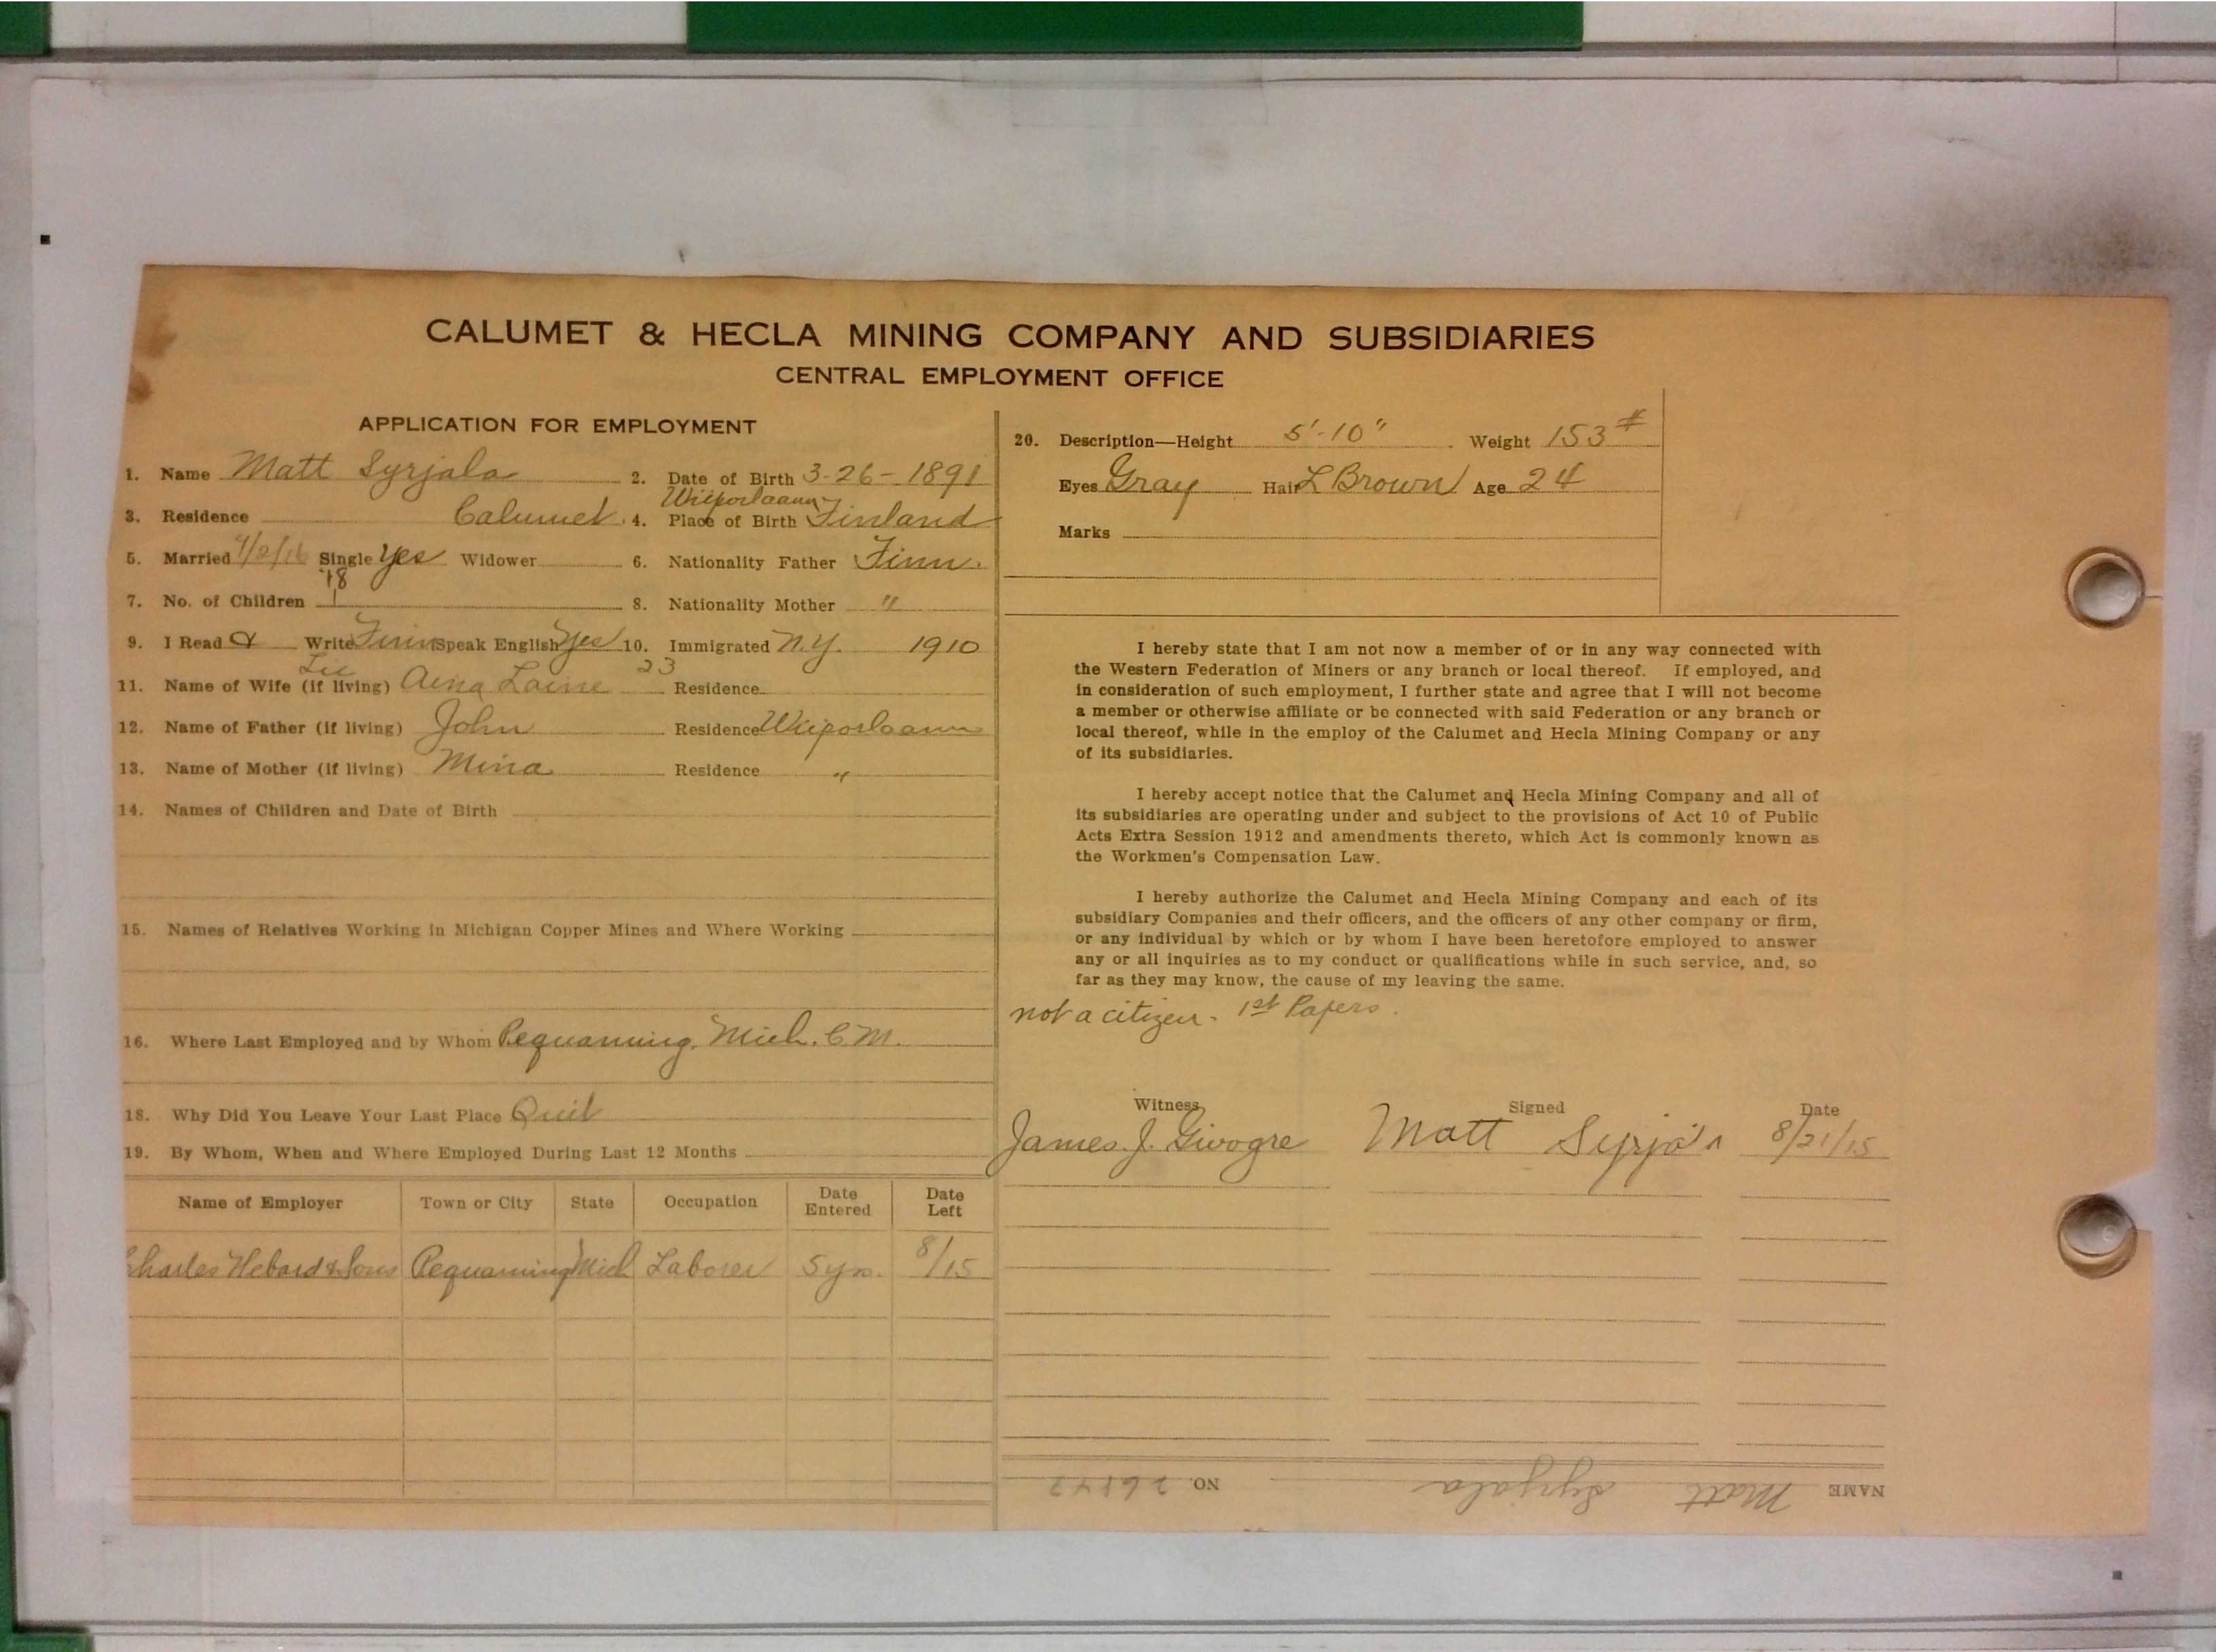 CALUMET & HECLA MINING COMPANY AND SUBSIDIARIES
CENTRAL EMPLOYMENT OFFICE
APPLICATION FOR EMPLOYMENT
1. Name Matt Syrjala 2. Date of Birth 3-26-1891
3. Residence Calumet. 4. Place of Birth Wiiporlaann Finland
5. Married 4/2/16 Single Yes Widower 6. Nationality Father Finn.
7. No. of Children '18 1 8. Nationality Mother "
9. I Read & Write Finn Speak English Yes 10. Immigrated N.Y. 1910
11. Name of Wife (if living) Aina Laine 23 Residence
12. Name of Father (if living) John Residence Wiiporlaann
13. Name of Mother (if living) Mina Residence "
14. Names of Children and Date of Birth
15. Names of Relatives Working in Michigan Copper Mines and Where Working
16. Where Last Employed and by Whom Pequaming, Mich. C.M.
18. Why Did You Leave Your Last Place Quit
19. By Whom, When and Where Employed During Last 12 Months
Name of Employer Town or City State Occupation Date Entered Date Left
Charles Hebard & Sons Pequaming Mich Laborer 5 yrs. 8/15
20. Description—Height 5'-10" Weight 153#
Eyes Gray Hair L Brown Age 24
Marks
I hereby state that I am not now a member of or in any way connected with
the Western Federation of Miners or any branch or local thereof. If employed, and
in consideration of such employment, I further state and agree that I will not become
a member or otherwise affiliate or be connected with said Federation or any branch or
local thereof, while in the employ of the Calumet and Hecla Mining Company or any
of its subsidiaries.
I hereby accept notice that the Calumet and Hecla Mining Company and all of
its subsidiaries are operating under and subject to the provisions of Act 10 of Public
Acts Extra Session 1912 and amendments thereto, which Act is commonly known as
the Workmen's Compensation Law.
I hereby authorize the Calumet and Hecla Mining Company and each of its
subsidiary Companies and their officers, and the officers of any other company or firm,
or any individual by which or by whom I have been heretofore employed to answer
any or all inquiries as to my conduct or qualifications while in such service, and, so
far as they may know, the cause of my leaving the same.
not a citizen. 1st Papers.
Witness Signed Date
James J. Givogre Matt 8/21/15
NAME Matt Syrjala NO.